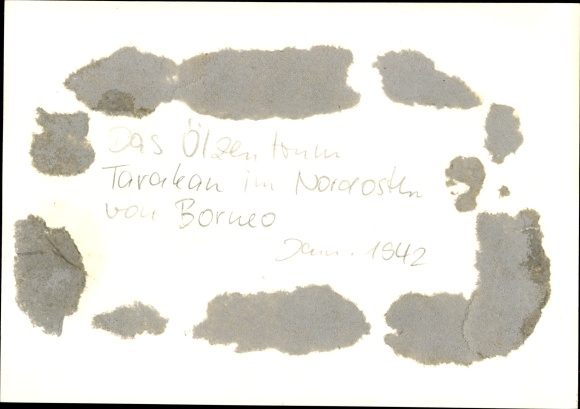 Das Ölzentrum
Tarakan im Nordosten
von Borneo
Jan. 1942